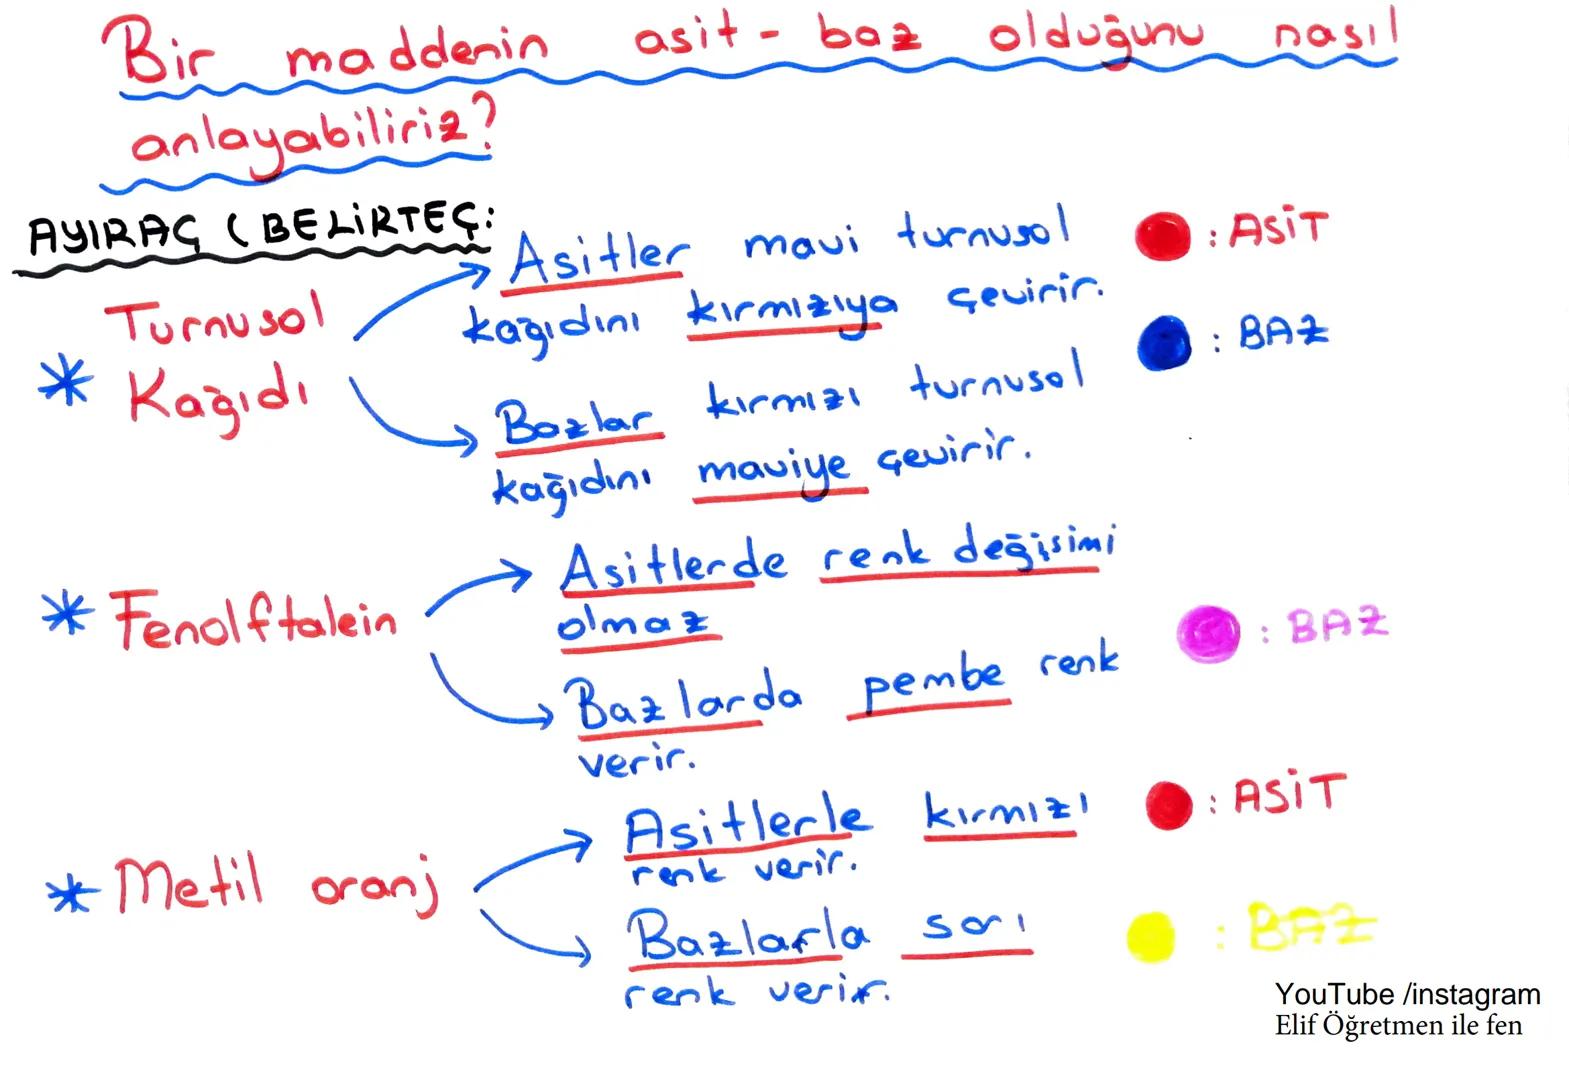 Bir maddenin asit - baz olduğunu nasıl
anlayabiliriz?
AYIRAÇ ( BELİRTEÇ:
Asitler mavi turnusol
kağıdını kırmızıya çevirir.
: ASİT
Turnusol
* Kağıdı
: BAZ
Bazlar kırmızı turnusol
kağıdını maviye çevirir.
* Fenolftalein
Asitlerde renk değişimi
olmaz
: BAZ
Bazlarda pembe renk
verir.
* Metil oranj
Asitlerle kırmızı
renk verir.
: ASİT
Bazlarla sarı
renk verir.
: BAZ
YouTube /instagram
Elif Öğretmen ile fen